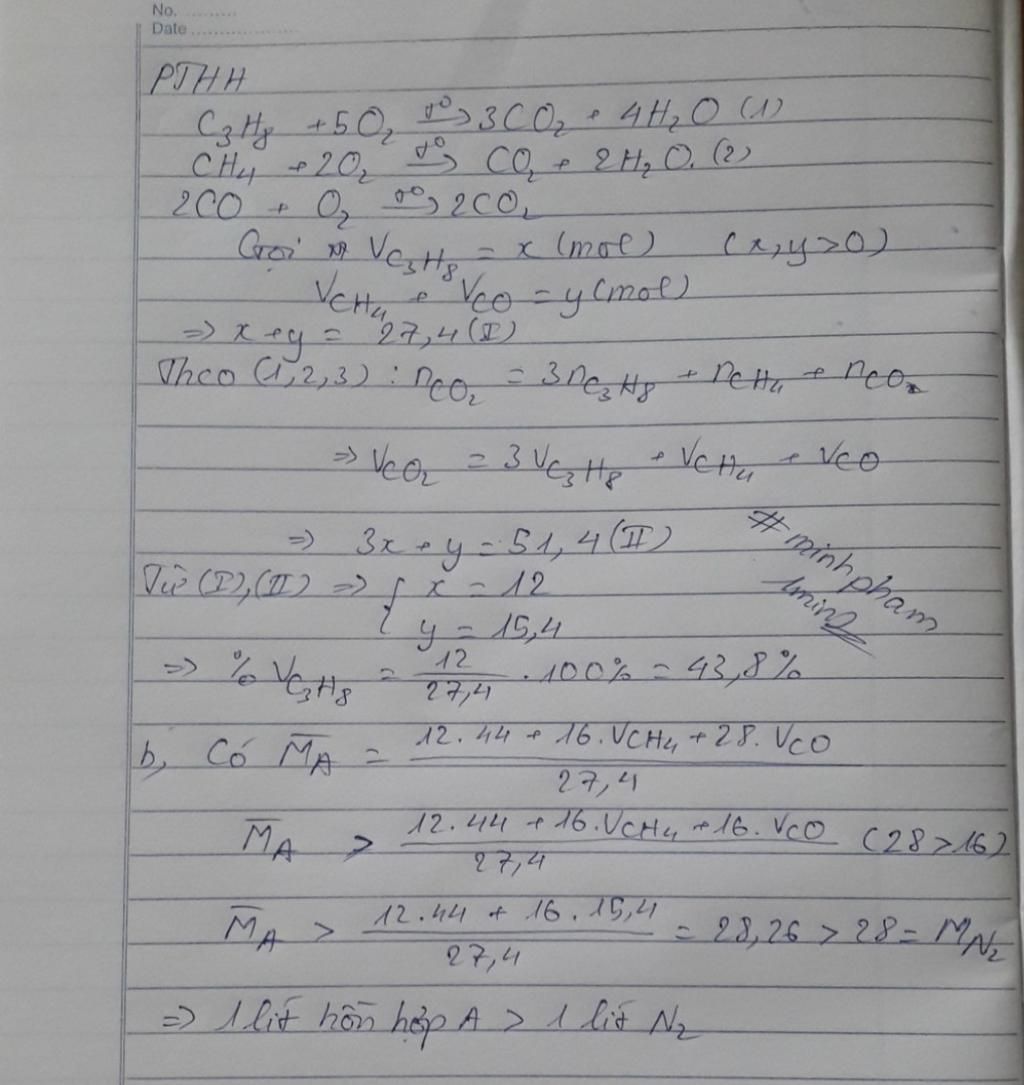 No. ..........
Date ......................
PTHH
C₃H₈ + 5O₂ –t°→ 3CO₂ + 4H₂O (1)
CH₄ + 2O₂ –t°→ CO₂ + 2H₂O. (2)
2CO + O₂ –t°→ 2CO₂
Gọi V C₃H₈ = x (mol) (x,y>0)
V CH₄ + V CO = y (mol)
=> x + y = 27,4 (I)
Theo (1,2,3) : n CO₂ = 3n C₃H₈ + n CH₄ + n CO
=> V CO₂ = 3 V C₃H₈ + V CH₄ + V CO
=> 3x + y = 51,4 (II)
# minh pham
1min2
Từ (I),(II) => { x = 12
y = 15,4
=> % V C₃H₈ = 12/27,4 . 100% = 43,8%
b, Có M̅_A = (12.44 + 16.V CH₄ + 28.V CO)/27,4
M̅_A > (12.44 + 16.V CH₄ + 16.V CO)/27,4 (28>16)
M̅_A > (12.44 + 16.15,4)/27,4 = 28,26 > 28 = M N₂
=> 1 lít hỗn hợp A > 1 lít N₂